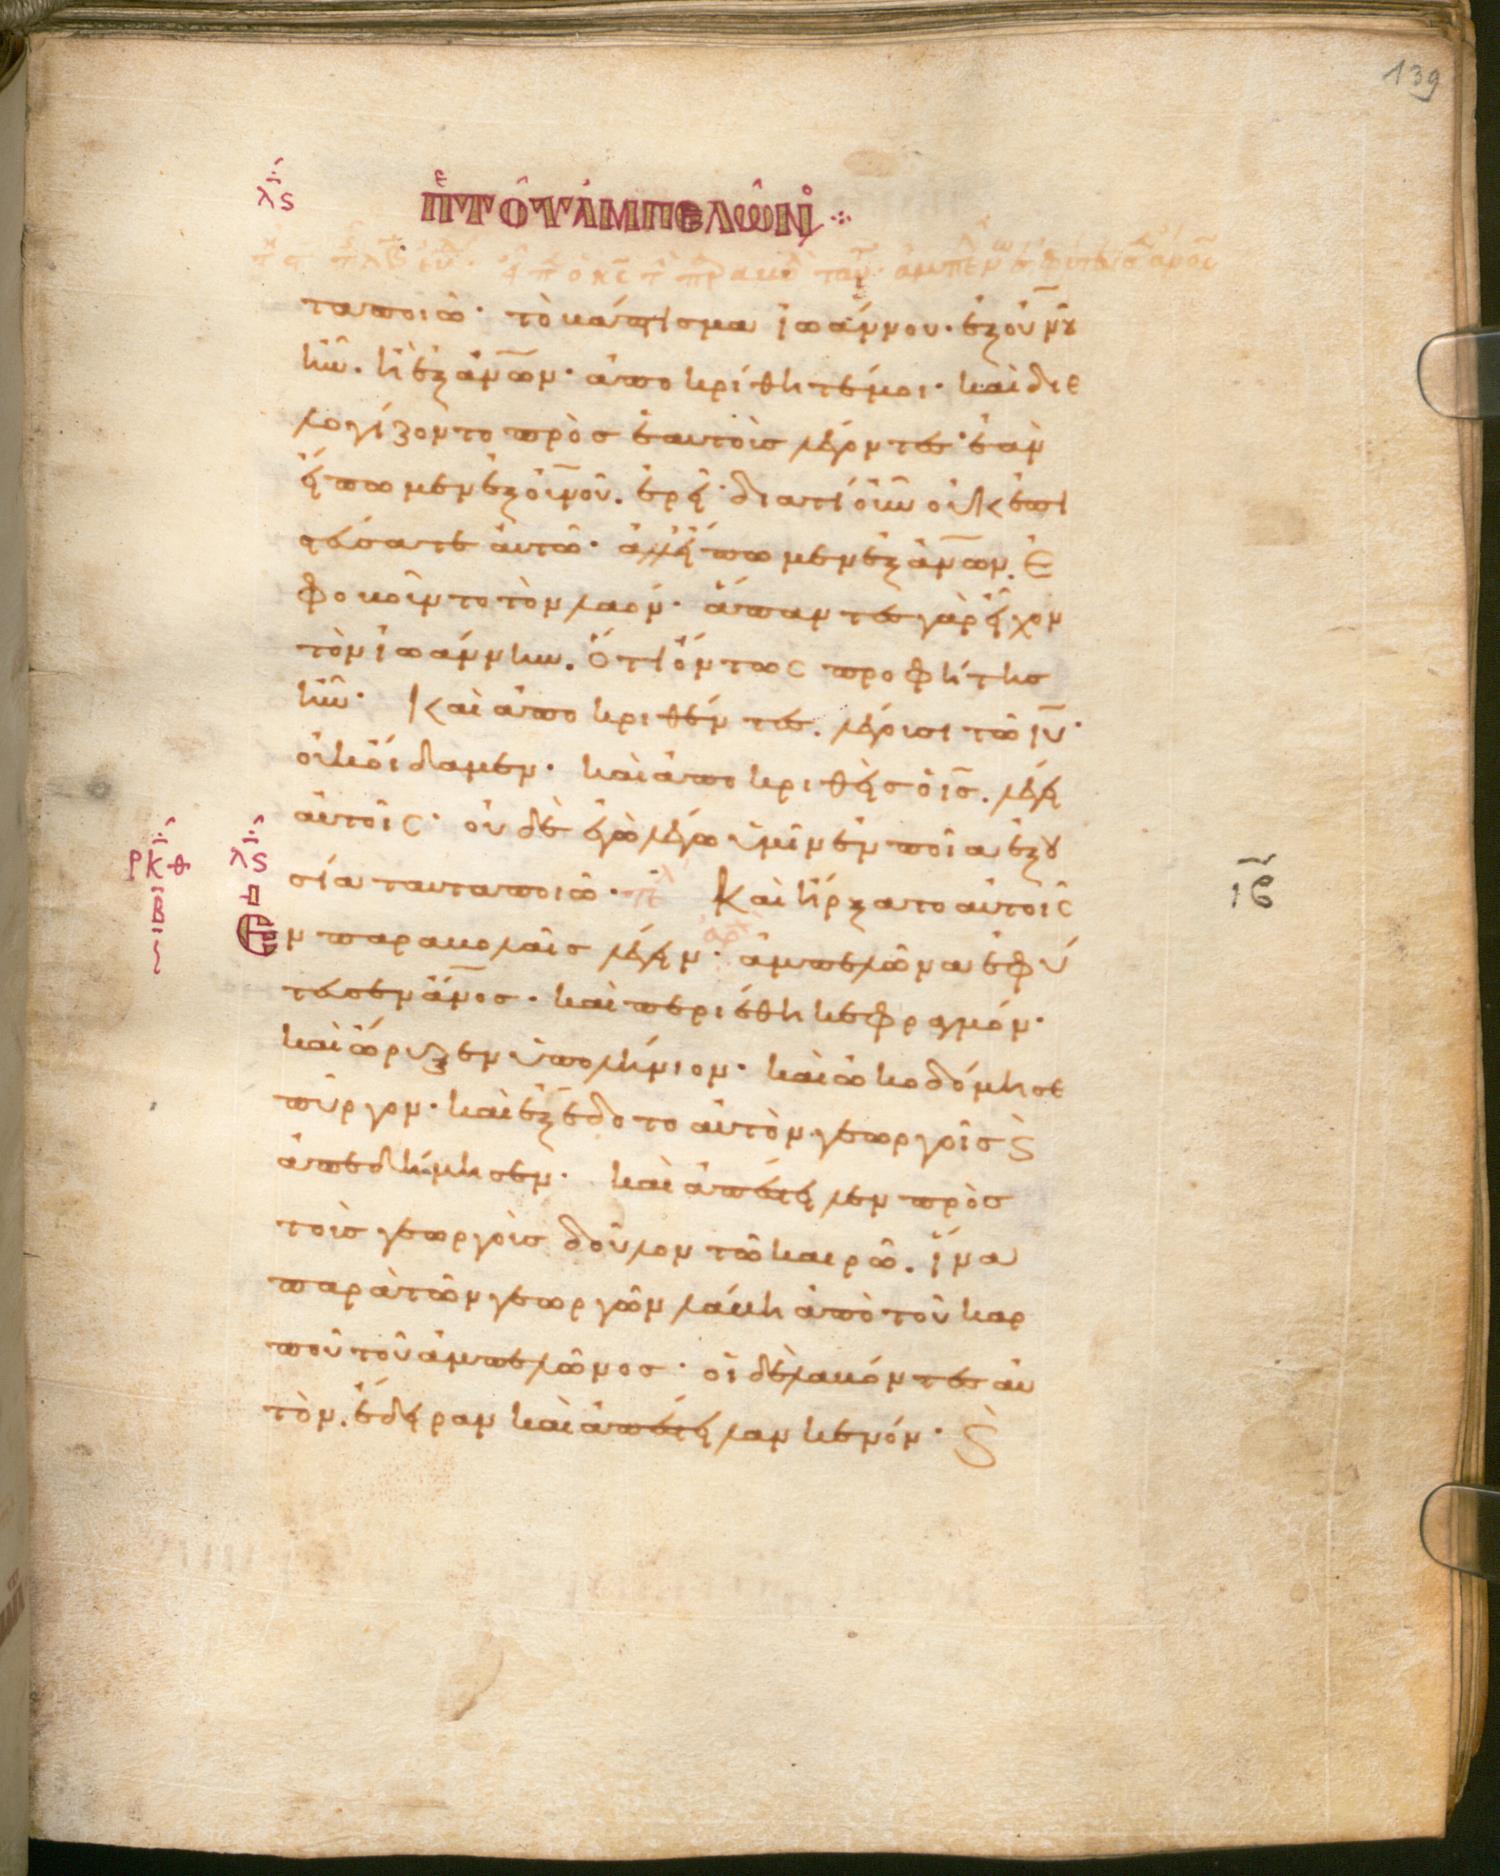 139
λϛ
ΠΕΡΙ ΤΟΥ ΑΜΠΕΛΩΝΟC
τα ποιῶ· τὸ βάπτισμα ἰωάννου· ἐξ οὐνου
ἦν. ἢ ἐξ ἀνων· ἀποκρίθητέ μοι· καὶ διε
λογίζοντο πρὸς ἑαυτοὺς λέγοντες· ἐὰν
εἴπωμεν ἐξ οὐνοῦ. ἐρεῖ· διατί οὖν οὐκ ἐπι
στεύσατε αὐτῶ· ἀλλ' εἴπωμεν ἐξ ἀνων. ἐ
φοβοῦντο τὸν λαόν· ἅπαντες γὰρ εἶχον
τὸν ἰωάννην. ὅτι ὄντως προφήτης
ἦν· Καὶ ἀποκριθέντες. λέγουσι τῶ ιυ·
οὐκ οἴδαμεν· καὶ ἀποκριθεὶς ὁ ις. λέγει
αὐτοῖς· οὐδὲ ἐγὼ λέγω ὑμῖν ἐν ποία ἐξου
σία ταῦτα ποιῶ· Καὶ ἤρξατο αὐτοῖς
ρκθ β λϛ
Εν παραβολαῖς λέγειν· ἀμπελῶνα ἐφύ
τευσεν ἄνος· καὶ περιέθηκε φραγμόν·
καὶ ὤρυξεν ὑπολήνιον· καὶ ὠκοδόμησε
πύργον· καὶ ἐξέδοτο αὐτὸν γεωργοῖς ϗ
ἀπεδήμησεν· καὶ ἀπέστειλεν πρὸς
τοὺς γεωργοὺς δοῦλον τῶ καιρῶ. ἵνα
παρὰ τῶν γεωργῶν λάβη ἀπὸ τοῦ καρ
ποῦ τοῦ ἀμπελῶνος· οἱ δὲ λαβόντες αὐ
τὸν. ἔδειραν καὶ ἀπέστειλαν κενόν· ϗ